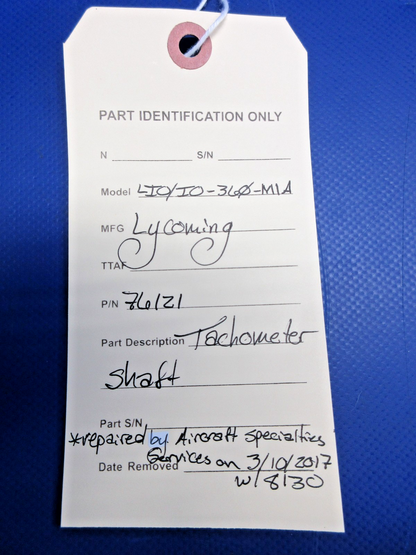 PART IDENTIFICATION ONLY
N S/N
Model LIO/IO-360-M1A
MFG Lycoming
TTAF
P/N 76121
Part Description Tachometer
Shaft
Part S/N
*repaired by Aircraft Specialties
Services on 3/10/2017
Date Removed
w/ 8130